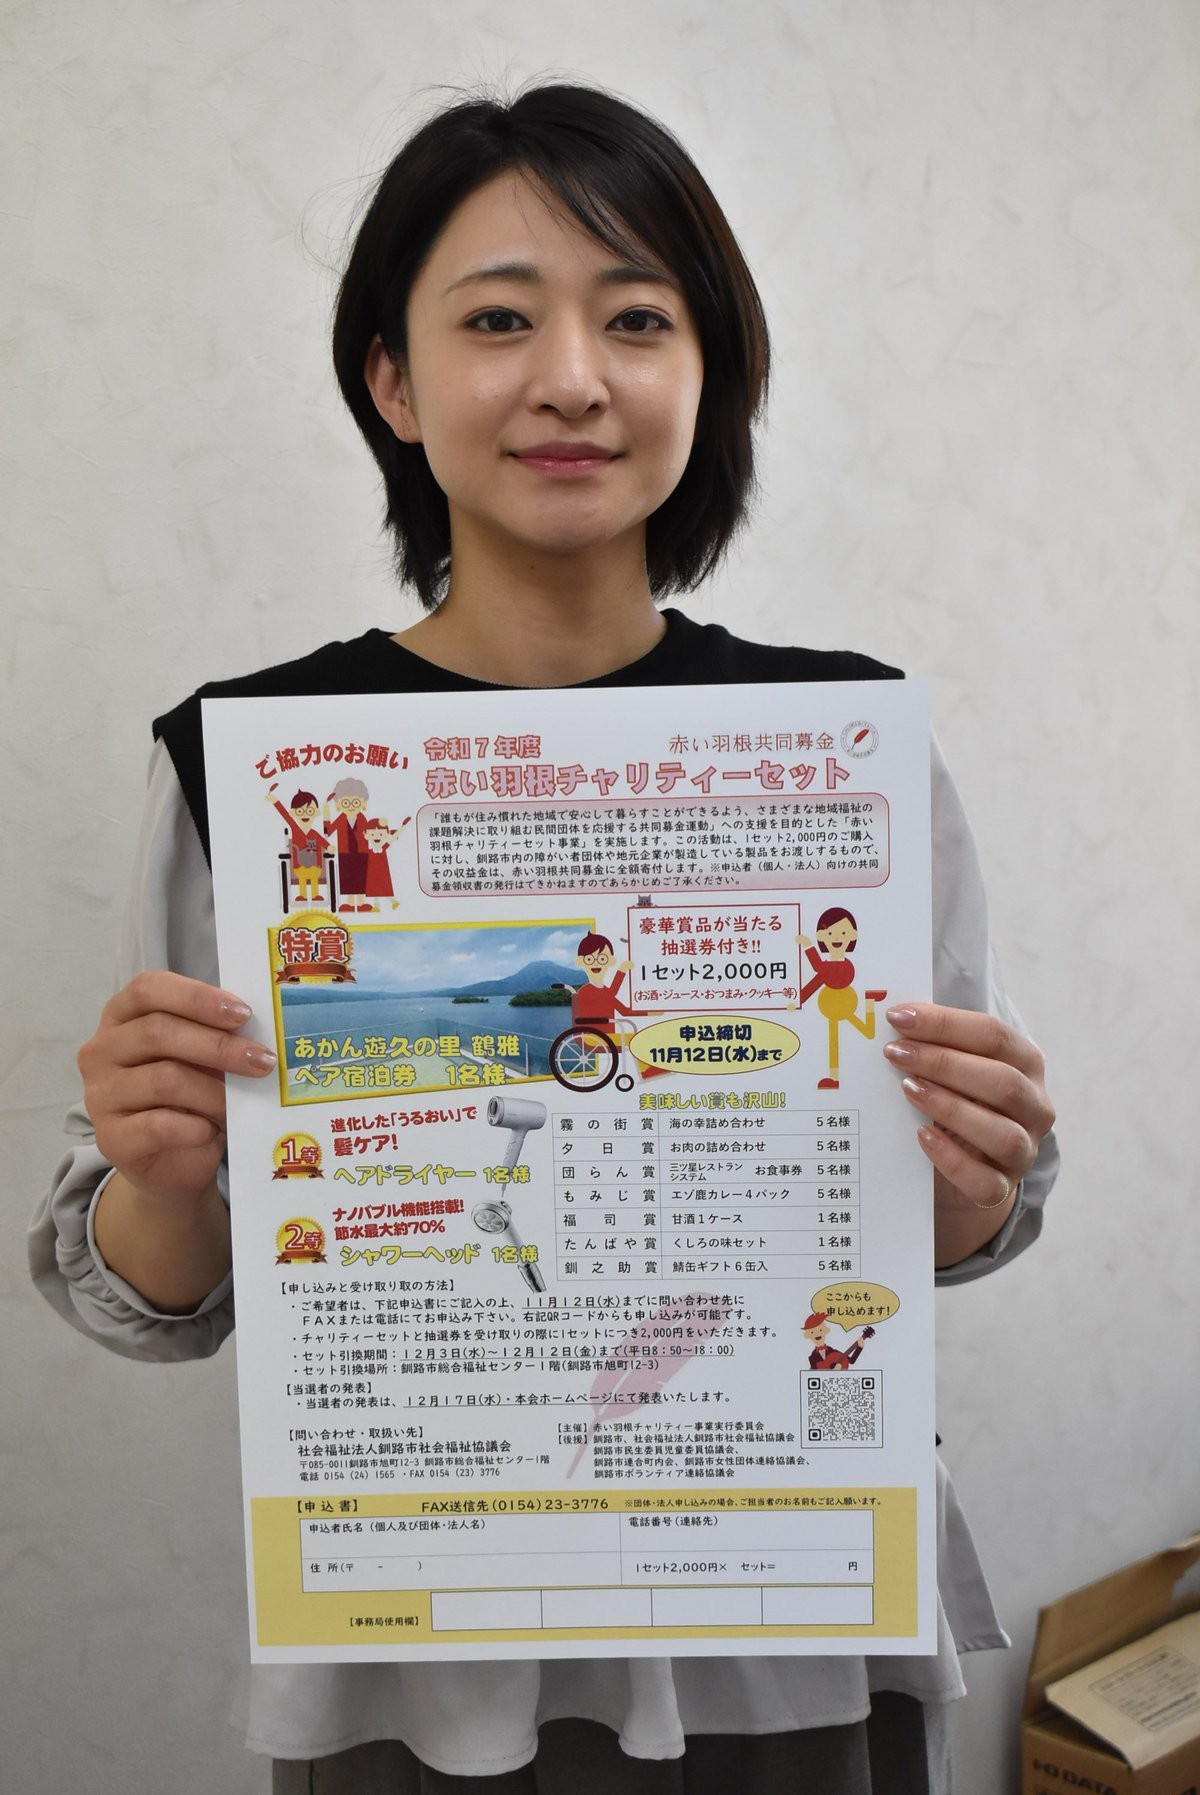 ご協力のお願い
令和7年度
赤い羽根共同募金
赤い羽根チャリティーセット
「誰もが住み慣れた地域で安心して暮らすことができるよう、さまざまな地域福祉の
課題解決に取り組む民間団体を応援する共同募金運動」への支援を目的とした「赤い
羽根チャリティーセット事業」を実施します。この活動は、1セット2,000円のご購入
に対し、釧路市内の障がい者団体や地元企業が製造している製品をお渡しするもので、
その収益金は、赤い羽根共同募金に全額寄付します。※申込者（個人・法人）向けの共同
募金領収書の発行はできかねますのであらかじめご了承ください。
特賞
あかん遊久の里 鶴雅
ペア宿泊券 1名様
豪華賞品が当たる
抽選券付き!!
1セット2,000円
(お酒・ジュース・おつまみ・クッキー等)
申込締切
11月12日(水)まで
1等
進化した「うるおい」で
髪ケア!
ヘアドライヤー 1名様
2等
ナノバブル機能搭載!
節水最大約70%
シャワーヘッド 1名様
美味しい賞も沢山!
霧の街賞 海の幸詰め合わせ 5名様
夕日賞 お肉の詰め合わせ 5名様
団らん賞 三ツ星レストランシステム お食事券 5名様
もみじ賞 エゾ鹿カレー4パック 5名様
福司賞 甘酒1ケース 1名様
たんばや賞 くしろの味セット 1名様
釧之助賞 鯖缶ギフト6缶入 5名様
【申し込みと受け取り取の方法】
・ご希望者は、下記申込書にご記入の上、11月12日(水)までに問い合わせ先に
FAXまたは電話にてお申込み下さい。右記QRコードからも申し込みが可能です。
・チャリティーセットと抽選券を受け取りの際に1セットにつき2,000円をいただきます。
・セット引換期間：12月3日(水)～12月12日(金)まで(平日8：50～18：00)
・セット引換場所：釧路市総合福祉センター1階(釧路市旭町12-3)
【当選者の発表】
・当選者の発表は、12月17日(水)・本会ホームページにて発表いたします。
ここからも
申し込めます!
【問い合わせ・取扱い先】
社会福祉法人釧路市社会福祉協議会
〒085-0011釧路市旭町12-3 釧路市総合福祉センター1階
電話 0154 (24) 1565 ・FAX 0154 (23) 3776
【主催】赤い羽根チャリティー事業実行委員会
【後援】釧路市、社会福祉法人釧路市社会福祉協議会
釧路市民生委員児童委員協議会、
釧路市連合町内会、釧路市女性団体連絡協議会、
釧路市ボランティア連絡協議会
【申込書】 FAX送信先(0154)23-3776 ※団体・法人申し込みの場合、ご担当者のお名前もご記入願います。
申込者氏名（個人及び団体・法人名）
電話番号(連絡先)
住 所(〒 - )
1セット2,000円× セット= 円
【事務局使用欄】
I-O DATA